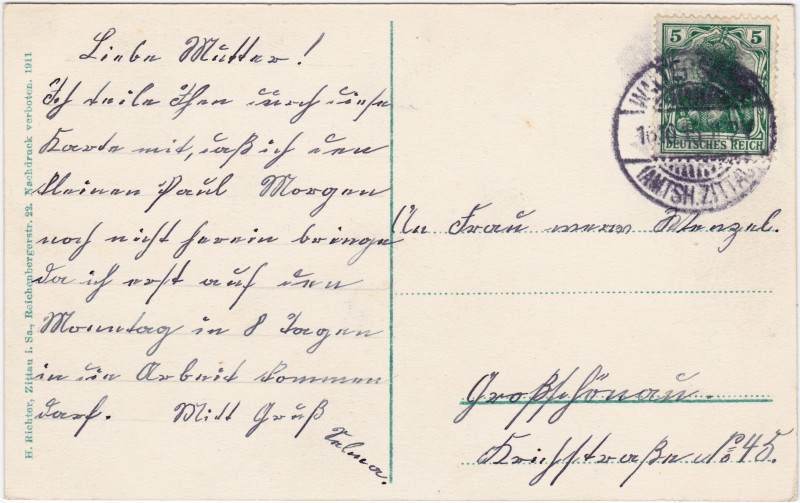 Liebe Mutter!
Ich teile Ihen durch diese
Karte mit, daß ich den
kleinen Paul Morgen
noch nicht herein bringe
da ich erst auf den
Monntag in 8 Tagen
in die Arbeit kommen
darf. Mitt Gruß
Selma.
An Frau verw Wenzel.
Großschönau.
Kirchstraße No 45.
5 5
DEUTSCHES REICH
(AMTSH. ZITTAU)
H. Richter, Zittau i. Sa., Reichenbergerstr. 22. Nachdruck verboten. 1911